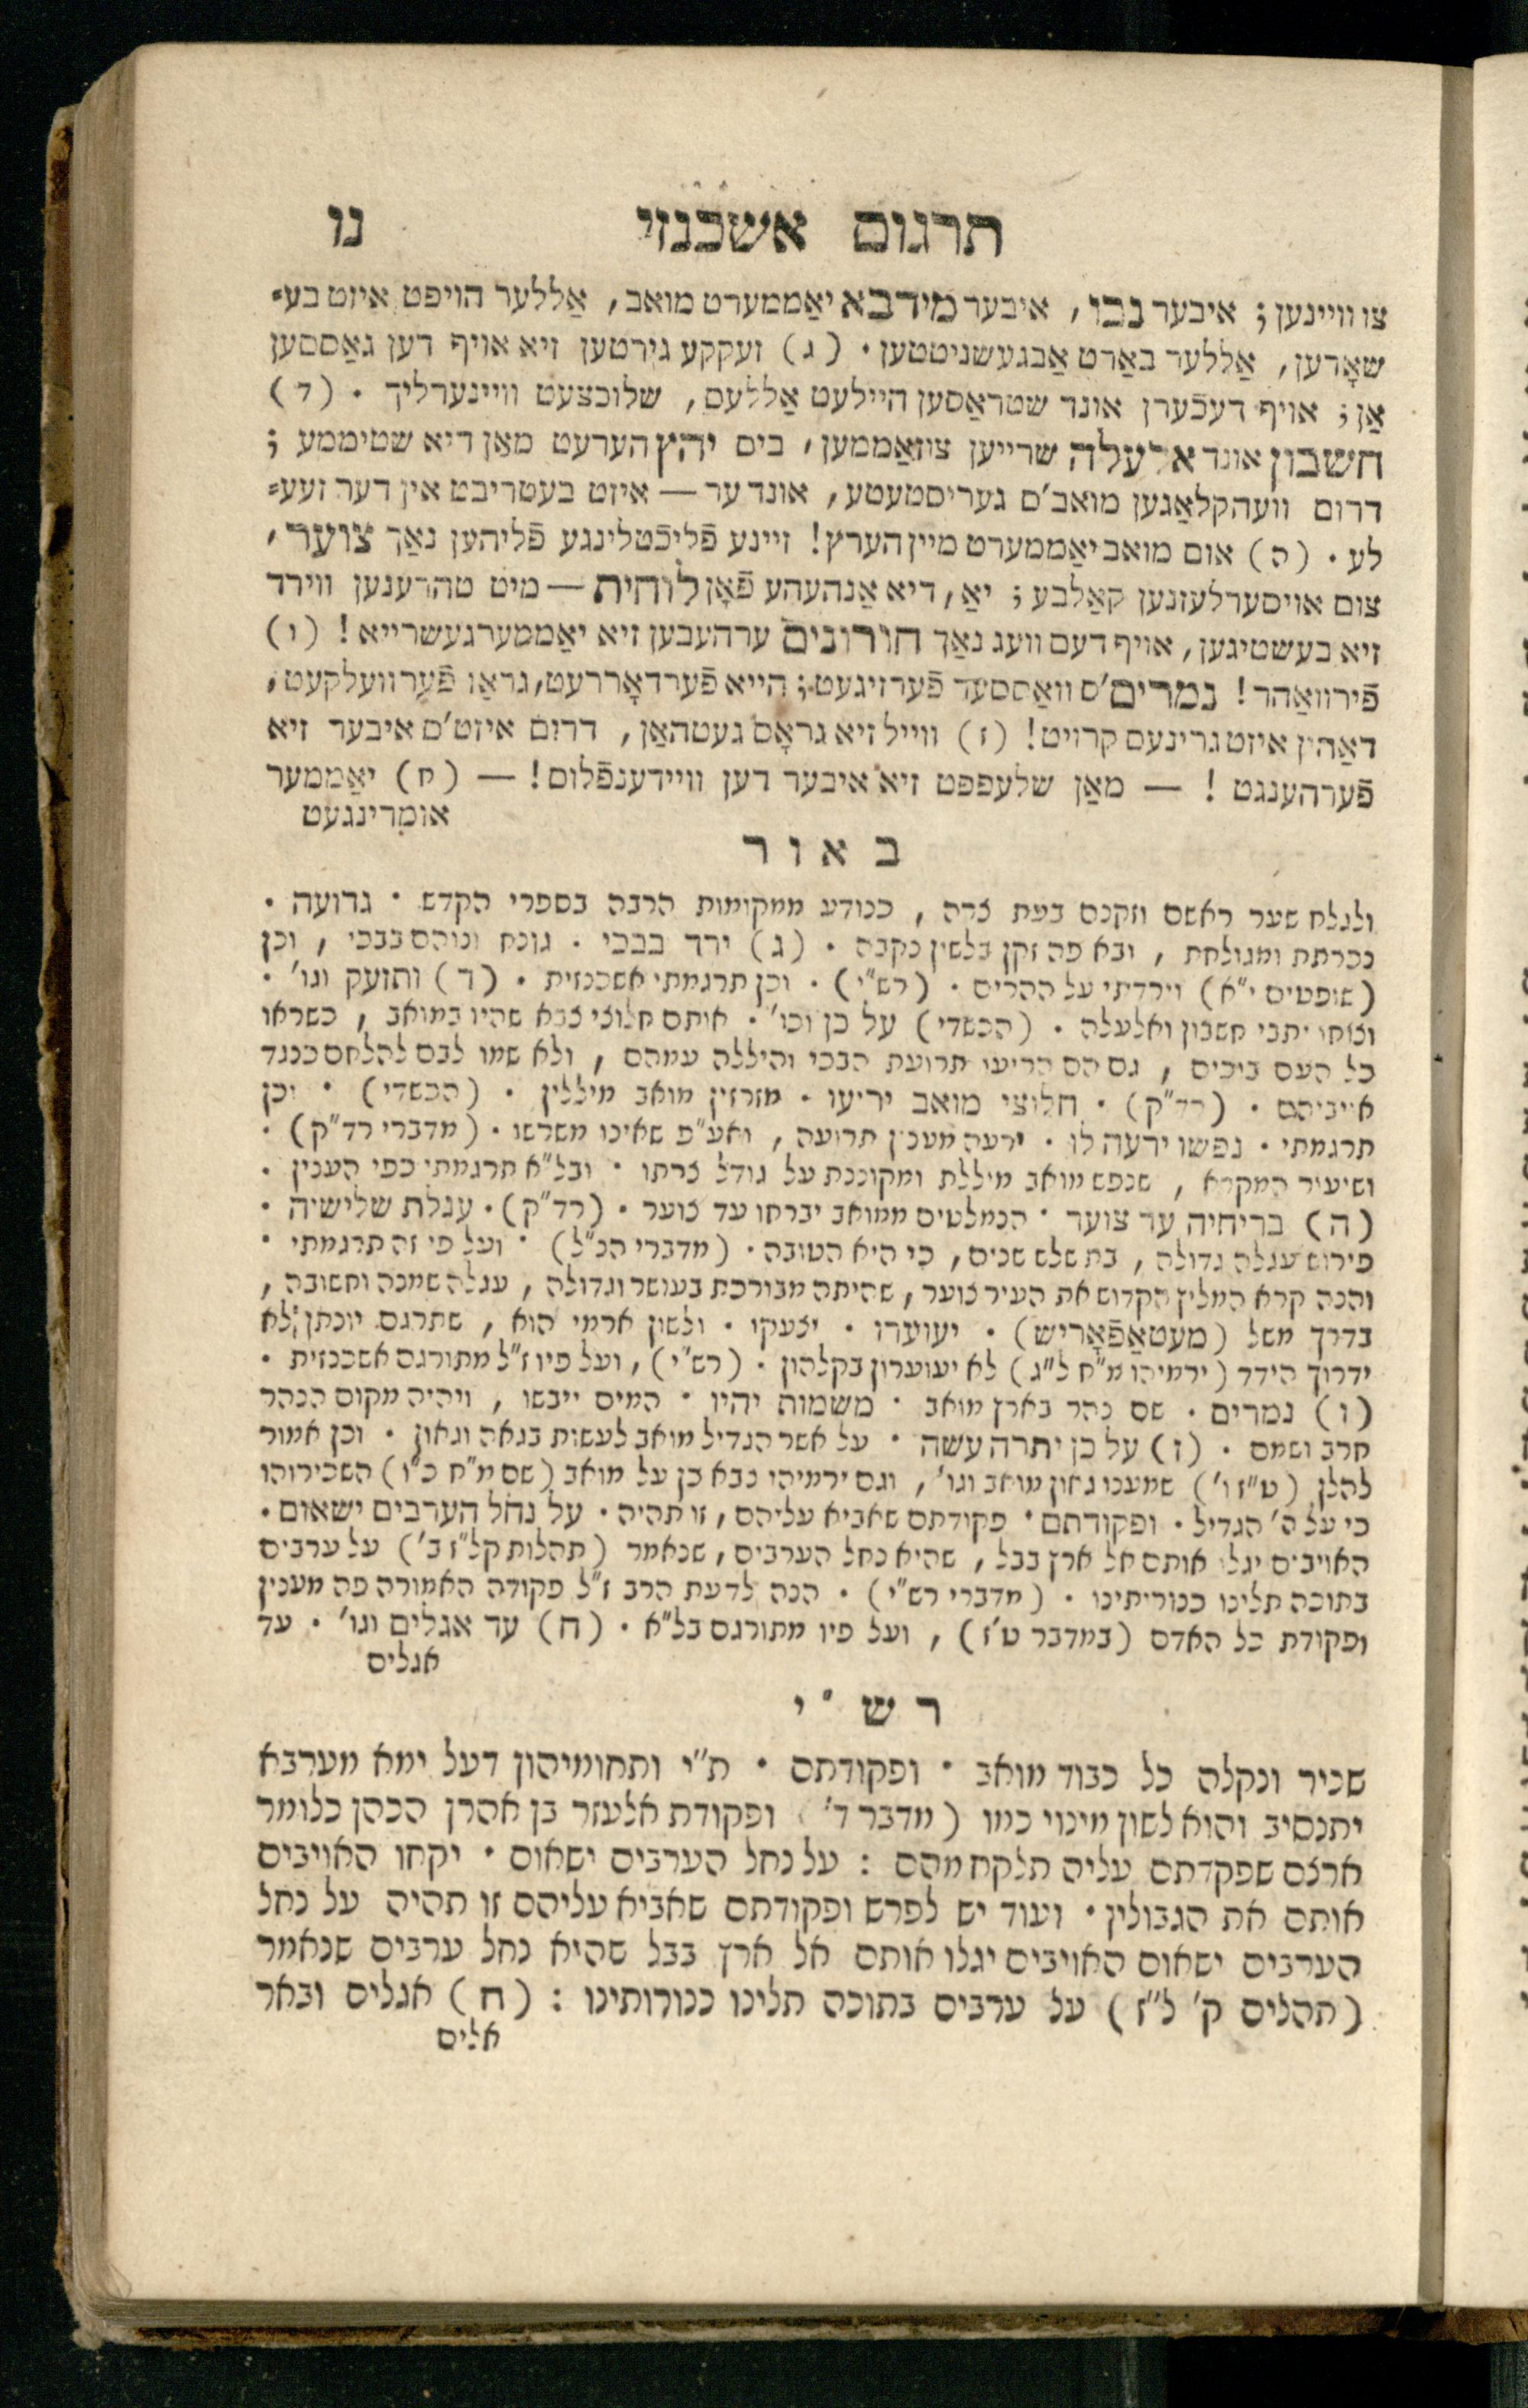 תרגום אשכנזי נו
צו וויינען; איבער נבו, איבער מידבא יאַממערט מואב, אַללער הויפט איזט בע⸗
שאָרען, אַללער באַרט אַבגעשניטטען. (ג) זעקקע גירטען זיא אויף דען גאַססען
אַן; אויף דעכֿערן אונד שטראַסען היילעט אַללעס, שלוכצעט וויינערליך. (ד)
חשבון אונד אלעלה שרייען צוזאַממען, ביס יהץ הערעט מאַן דיא שטיממע;
דרום וועהקלאַגען מואב'ס געריסטעטע, אונד ער — איזט בעטריבט אין דער זעע⸗
לע. (ה) אום מואב יאַממערט מיין הערץ! זיינע פֿליכֿטלינגע פֿליהען נאַך צוער,
צום אויסערלעזנען קאַלבע; יאַ, דיא אַנהעהע פֿאָן לוחית — מיט טהרענען ווירד
זיא בעשטיגען, אויף דעם וועג נאַך חורונים ערהעבען זיא יאַממערגעשרייא! (ו)
פֿירוואַהר! נמרים'ס וואַססער פֿערזיגעט; הייא פֿערדאָררעט, גראַז פֿערוועלקעט,
דאַהין איזט גרינעס קרויט! (ז) ווייל זיא גראָס געטהאַן, דרום איזט'ס איבער זיא
פֿערהענגט! — מאַן שלעפפט זיא איבער דען וויידענפֿלוס! — (ח) יאַממער
אומרינגעט
באור
ולגלח שער ראשם וזקנם בעת צרה, כנודע ממקומות הרבה בספרי הקדש. גרועה.
נכרתת ומגולחת, ובא פה זקן בלשון נקבה. (ג) ירד בבכי. גונח ונוהם בבכי, וכן
(שופטים י"א) וירדתי על ההרים. (רש"י). וכן תרגמתי אשכנזית. (ד) ותזעק וגו'.
וצוחו יתבי חשבון ואלעלה. (הכשדי) על כן וכו'. אותם חלוצי צבא שהיו במואב, כשראו
כל העם בוכים, גם הם הריעו תרועת הבכי והיללה עמהם, ולא שמו לבם להלחם כנגד
אויביהם. (רד"ק). חלוצי מואב יריעו. מזרזין מואב מיללין. (הכשדי). וכן
תרגמתי. נפשו ירעה לו. ירעה מענין תרועה, ואע"פ שאינו משרשו. (מדברי רד"ק).
ושיעור המקרא, שנפש מואב מיללת ומקוננת על גודל צרתו. ובל"א תרגמתי כפי הענין.
(ה) בריחיה עד צוער. הנמלטים ממואב יברחו עד צוער. (רד"ק). עגלת שלישיה.
פירוש עגלה גדולה, בת שלש שנים, כי היא הטובה. (מדברי הנ"ל). ועל פי זה תרגמתי.
והנה קרא המליץ הקדוש את העיר צוער, שהיתה מבורכת בעושר וגדולה, עגלה שמנה וחשובה,
בדרך משל (מעטאַפֿאָריש). יעוערו. יצעקו. ולשון ארמי הוא, שתרגם יונתן לא
ידרוך הידד (ירמיהו מ"ח ל"ג) לא יעוערון בקלהון. (רש"י), ועל פיו ז"ל מתורגם אשכנזית.
(ו) נמרים. שם נהר בארץ מואב. משמות יהיו. המים ייבשו, ויהיה מקום הנהר
חרב ושמם. (ז) על כן יתרה עשה. על אשר הגדיל מואב לעשות בגאה וגאון. וכן אמור
להלן (ט"ז ו') שמענו גאון מואב וגו', וגם ירמיהו נבא כן על מואב (שם מ"ח כ"ו) השכירוהו
כי על ה' הגדיל. ופקודתם. פקודתם שאביא עליהם, זו תהיה. על נחל הערבים ישאום.
האויבים יגלו אותם אל ארץ בבל, שהיא נחל הערבים, שנאמר (תהלות קל"ז ב') על ערבים
בתוכה תלינו כנורותינו. (מדברי רש"י). הנה לדעת הרב ז"ל פקודה האמורה פה מענין
ופקודת כל האדם (במדבר ט"ז), ועל פיו מתורגם בל"א. (ח) עד אגלים וגו'. עד
אגלים
רש"י
שכיר ונקלה כל כבוד מואב. ופקודתם. ת"י ותחומיהון דעל ימא מערבא
יתנסיב והוא לשון מינוי כמו (מדבר ד' ופקודת אלעזר בן אהרן הכהן כלומר
ארצם שפקדתם עליה תלקח מהם: על נחל הערבים ישאום. יקחו האויבים
אותם את הגבולין. ועוד יש לפרש ופקודתם שאביא עליהם זו תהיה על נחל
הערבים ישאום האויבים יגלו אותם אל ארץ בבל שהיא נחל ערבים שנאמר
(תהלים ק' ל"ז) על ערבים בתוכה תלינו כנורותינו: (ח) אגלים ובאר
אלים